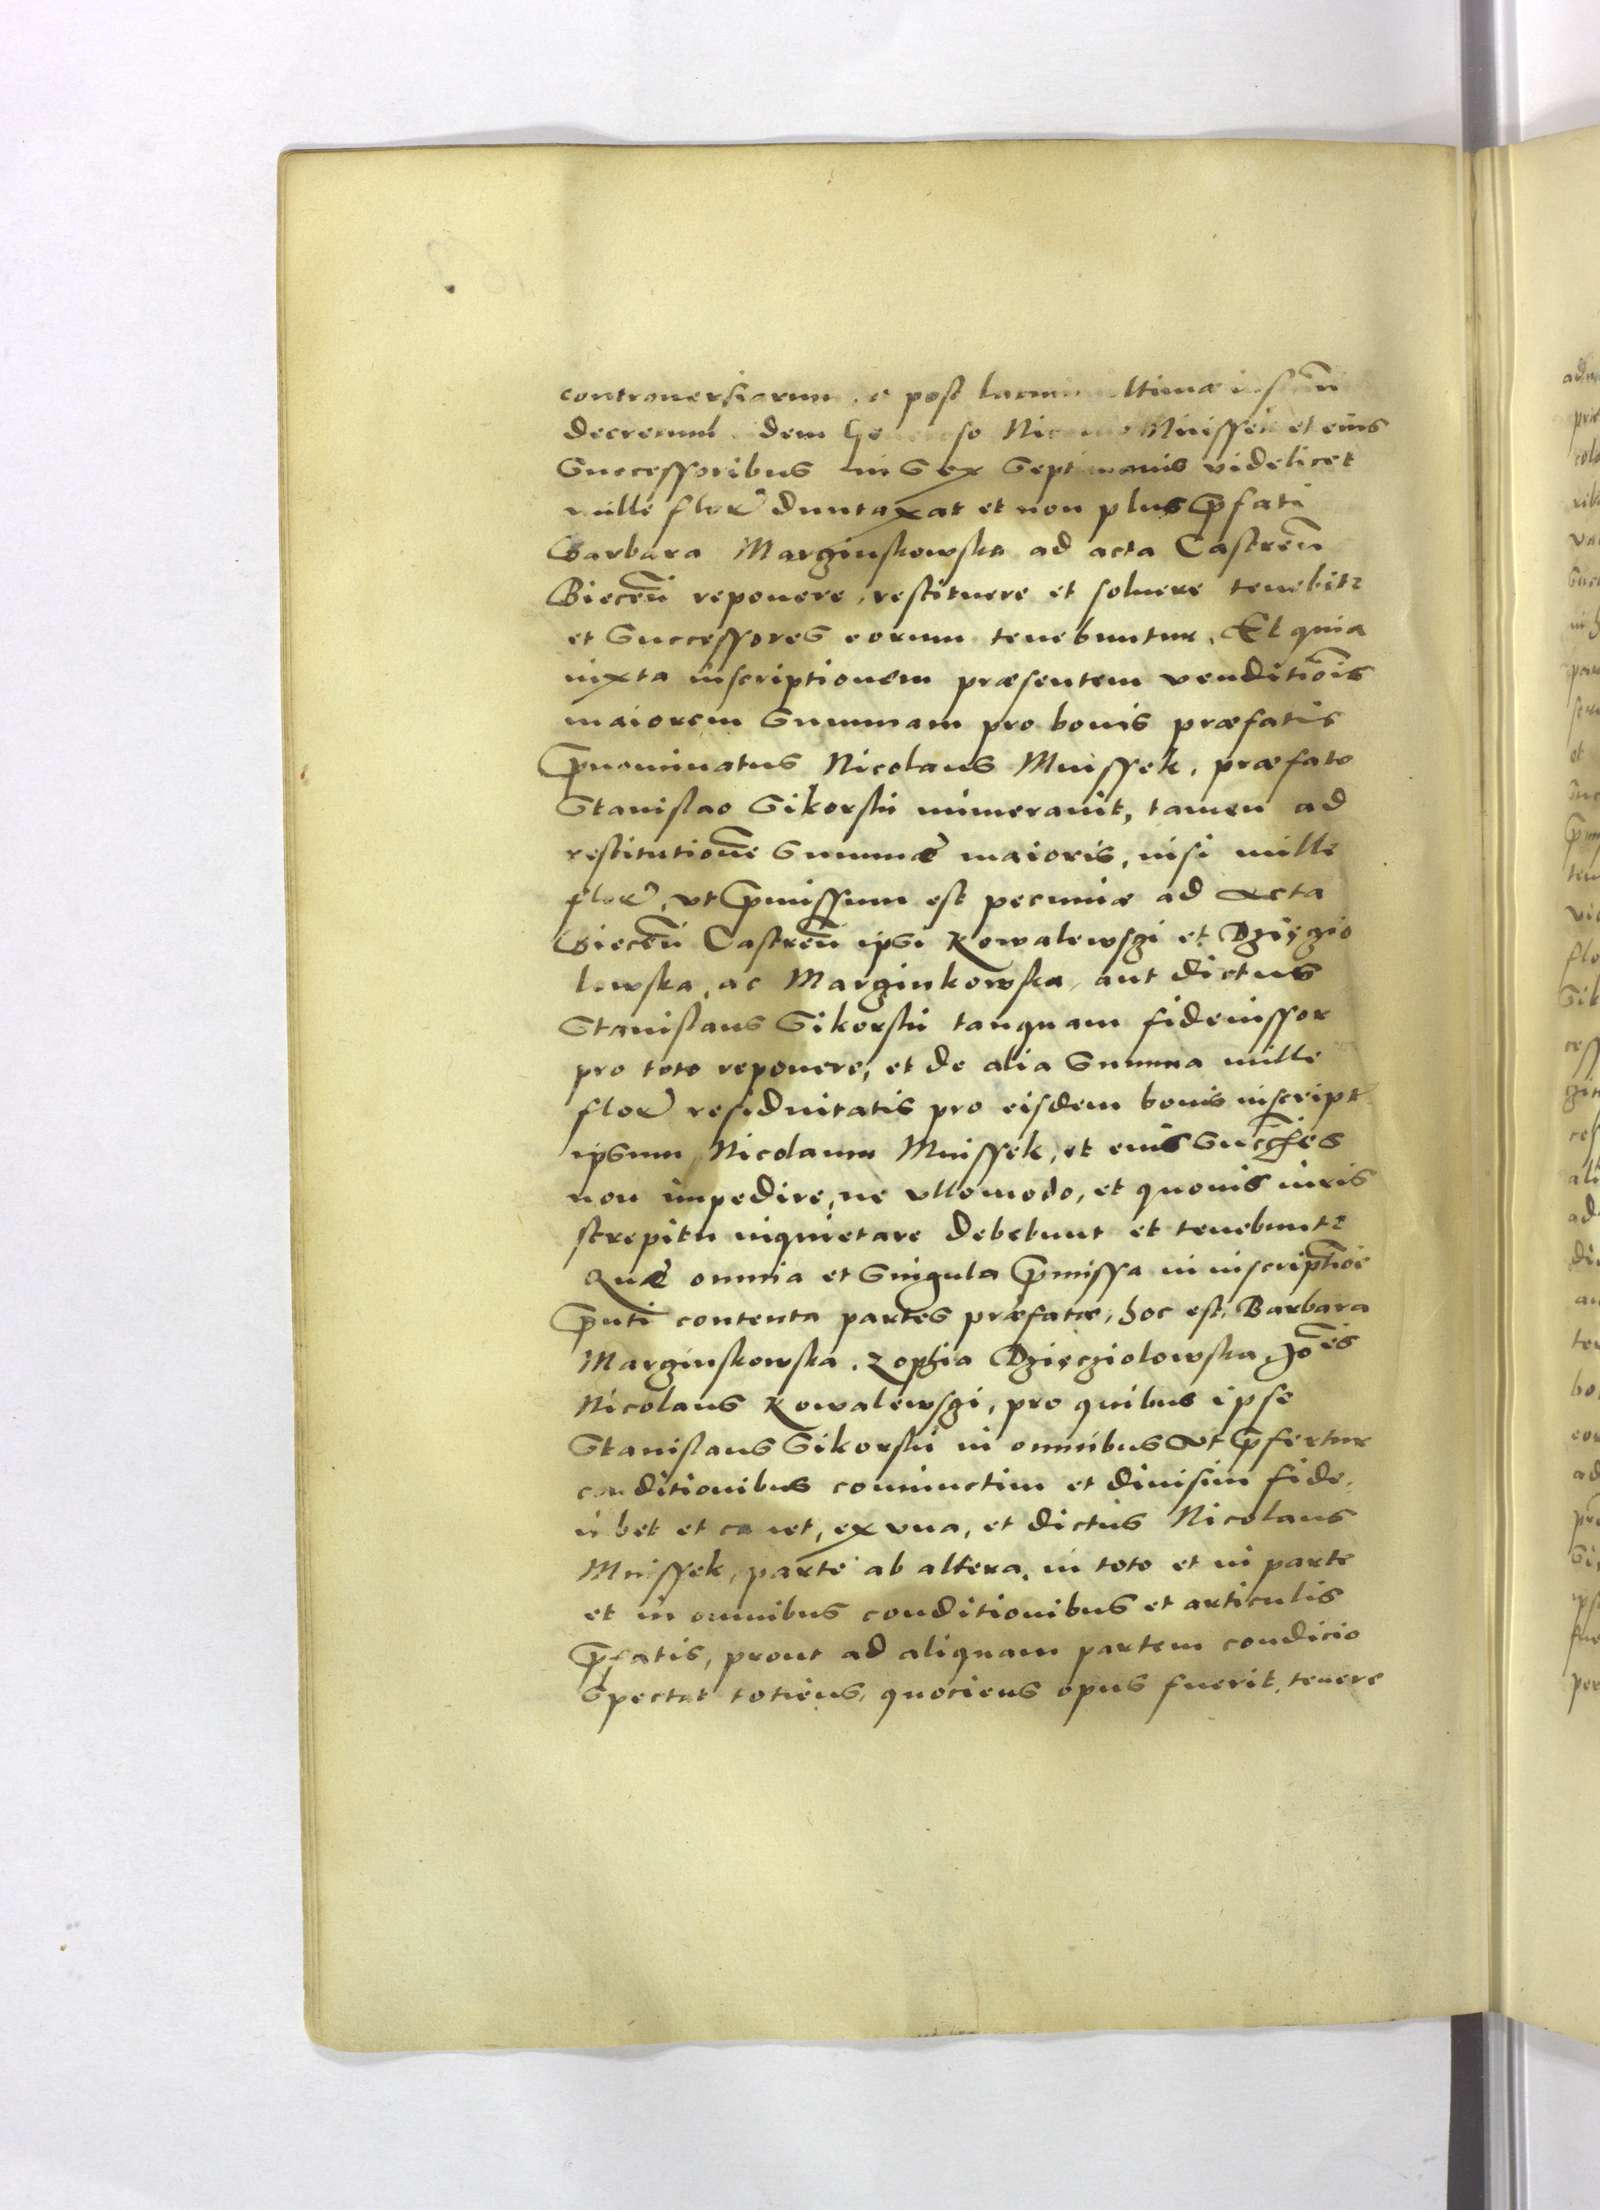 controuersiarum, post latam ultimæ
decretum Generoso Nicolao Mnissek et eius
Successoribus in Sex Septimanis videlicet
mille flor duntaxat et non plus p̄fati
Barbara Marginskowska ad acta Castren̄
Biecen̄ reponere, restituere et soluere tenebit
et Successores eorum tenebuntur. Et quia
iuxta inscriptionem præsentem venditiōis
maiorem Summam pro bonis præfatis
P̄nominatus Nicolaus Mnissek, præfato
Stanislao Sikorski numerauit, tamen ad
restitutione Summæ maioris, nisi mille
flor, vt p̄missum est pecuniæ ad acta
Biecen̄ Castren̄ ipsi Kowalewsgi et Dzięgio
lowska, ac Marginkowska, aut dictus
Stanislaus Sikorski tanquam fideiussor
pro toto reponere, et de alia Summa mille
flor residuitatis pro eisdem bonis inscript
ipsum Nicolaum Mnissek, et eius Succ̄es
non impedire, ne vllomodo, et quouis iuris
strepitu inquietare debebunt et tenebunt
Quæ omnia et Singula p̄missa in inscriptiōe
p̄nti contenta partes præfatæ, hoc est, Barbara
Marginskowska, Zophia Dzięgiolowska, Joēs
Nicolaus Kowalewsgi, pro quibus ipse
Stanislaus Sikorski in omnibus vt p̄fertur
conditionibus coniunctim et diuisim fide
iubet et cauet, ex vna, et dictus Nicolaus
Mnissek, parte ab altera, in toto et in parte
et in omnibus conditionibus et articulis
p̄fatis, prout ad aliquam partem condicio
Spectat totiens, quociens opus fuerit, tenere